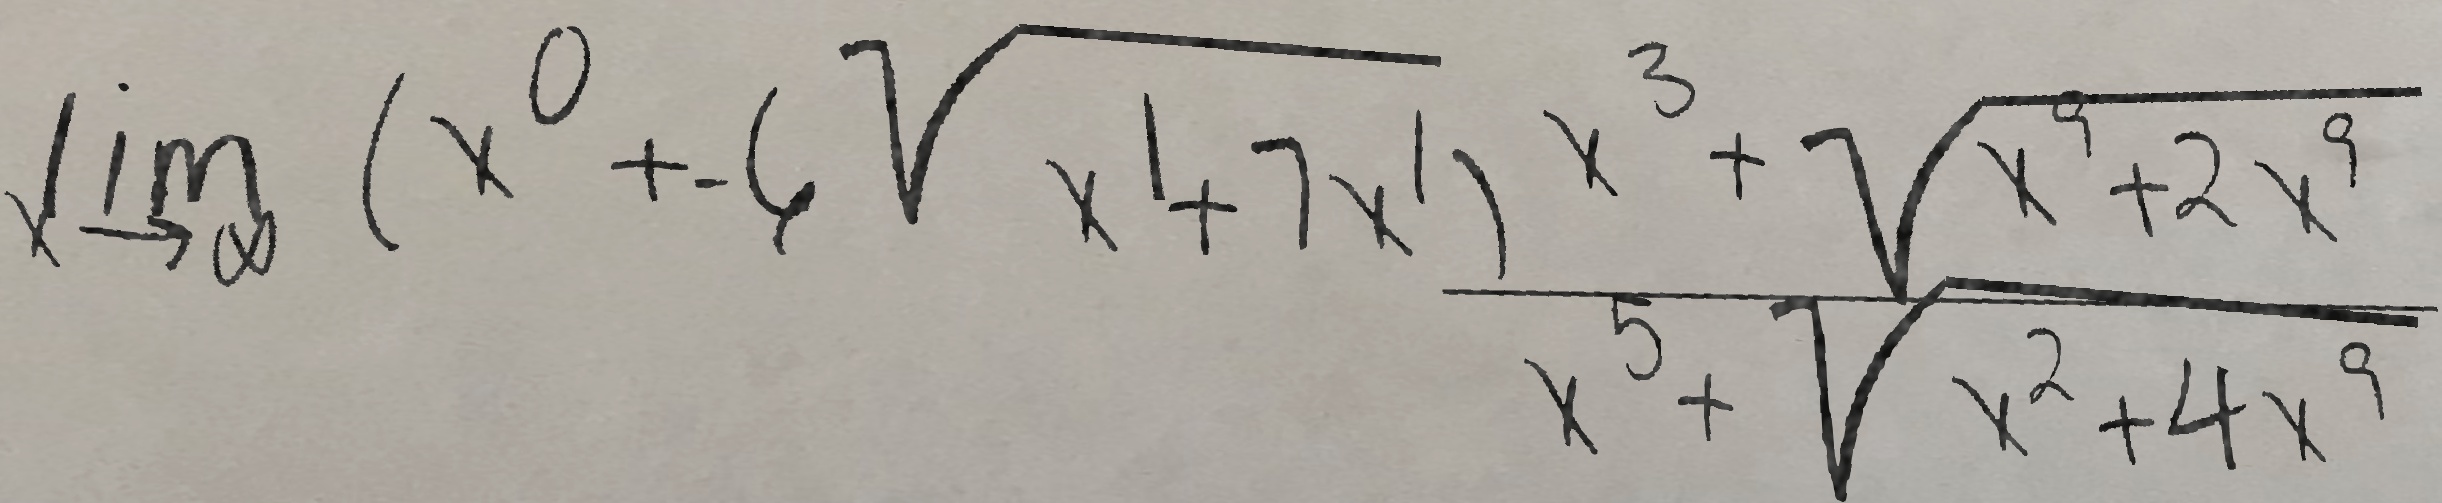 \lim_{x \to \infty} (x^0 + -6\sqrt{x^1 + 7x^1}) \frac{x^3 + \sqrt{x^9 + 2x^9}}{x^5 + \sqrt{x^2 + 4x^9}}